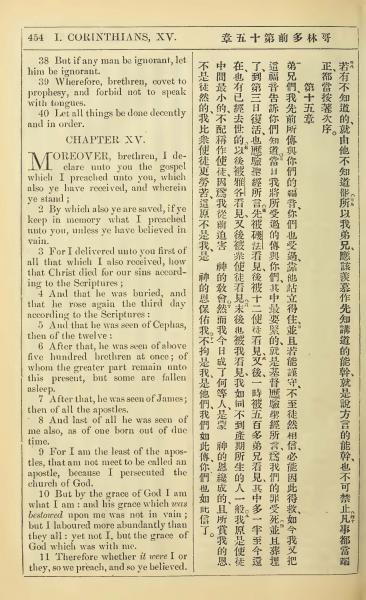 454 I. CORINTHIANS, XV.
38 But if any man be ignorant, let
him be ignorant.
39 Wherefore, brethren, covet to
prophesy, and forbid not to speak
with tongues.
40 Let all things be done decently
and in order.
CHAPTER XV.
MOREOVER, brethren, I de-
clare unto you the gospel
which I preached unto you, which
also ye have received, and wherein
ye stand;
2 By which also ye are saved, if ye
keep in memory what I preached
unto you, unless ye have believed in
vain.
3 For I delivered unto you first of
all that which I also received, how
that Christ died for our sins accord-
ing to the Scriptures;
4 And that he was buried, and
that he rose again the third day
according to the Scriptures:
5 And that he was seen of Cephas,
then of the twelve:
6 After that, he was seen of above
five hundred brethren at once; of
whom the greater part remain unto
this present, but some are fallen
asleep.
7 After that, he was seen of James;
then of all the apostles.
8 And last of all he was seen of
me also, as of one born out of due
time.
9 For I am the least of the apos-
tles, that am not meet to be called an
apostle, because I persecuted the
church of God.
10 But by the grace of God I am
what I am: and his grace which was
bestowed upon me was not in vain;
but I laboured more abundantly than
they all: yet not I, but the grace of
God which was with me.
11 Therefore whether it were I or
they, so we preach, and so ye believed.
哥林多前第十五章
若有不知道的、就由他不知道罷、所以我弟兄、應該羨慕作先知講道的能幹、就是說方言的能幹、也不可禁止、凡事都當端
正、都當按着次序。
第十五章
弟兄們、我先前所傳與你們的福音、你們也受過、靠他站立得住、並且若能謹守、不至徒然相信、必能因此得救、如今我又把
這福音告訴你們知道、當日我將所受過的傳與你們、其中最要緊的、就是基督應驗聖經所言、爲我們的罪受死、並且葬埋
了、到第三日復活、也應驗聖經所言、先被磯法看見、後被十二使徒看見、又後一時被五百多弟兄看見、其中多一半至今還
在、也有已經去世的、以後被雅各看見、又後被衆使徒看見、末後也被我看見、我如同不到產期所生的人一般、我原是使徒
中間最小的、不配稱作使徒、因爲我從前逼害 神的敎會、然而我今日成了何等人、是蒙 神的恩纔成的、且所賞我的恩
不是徒然的、我比衆使徒更勞苦、這原不是我、是 神的恩保佑我、不拘是我、是他們、我們如此傳、你們也如此信了。